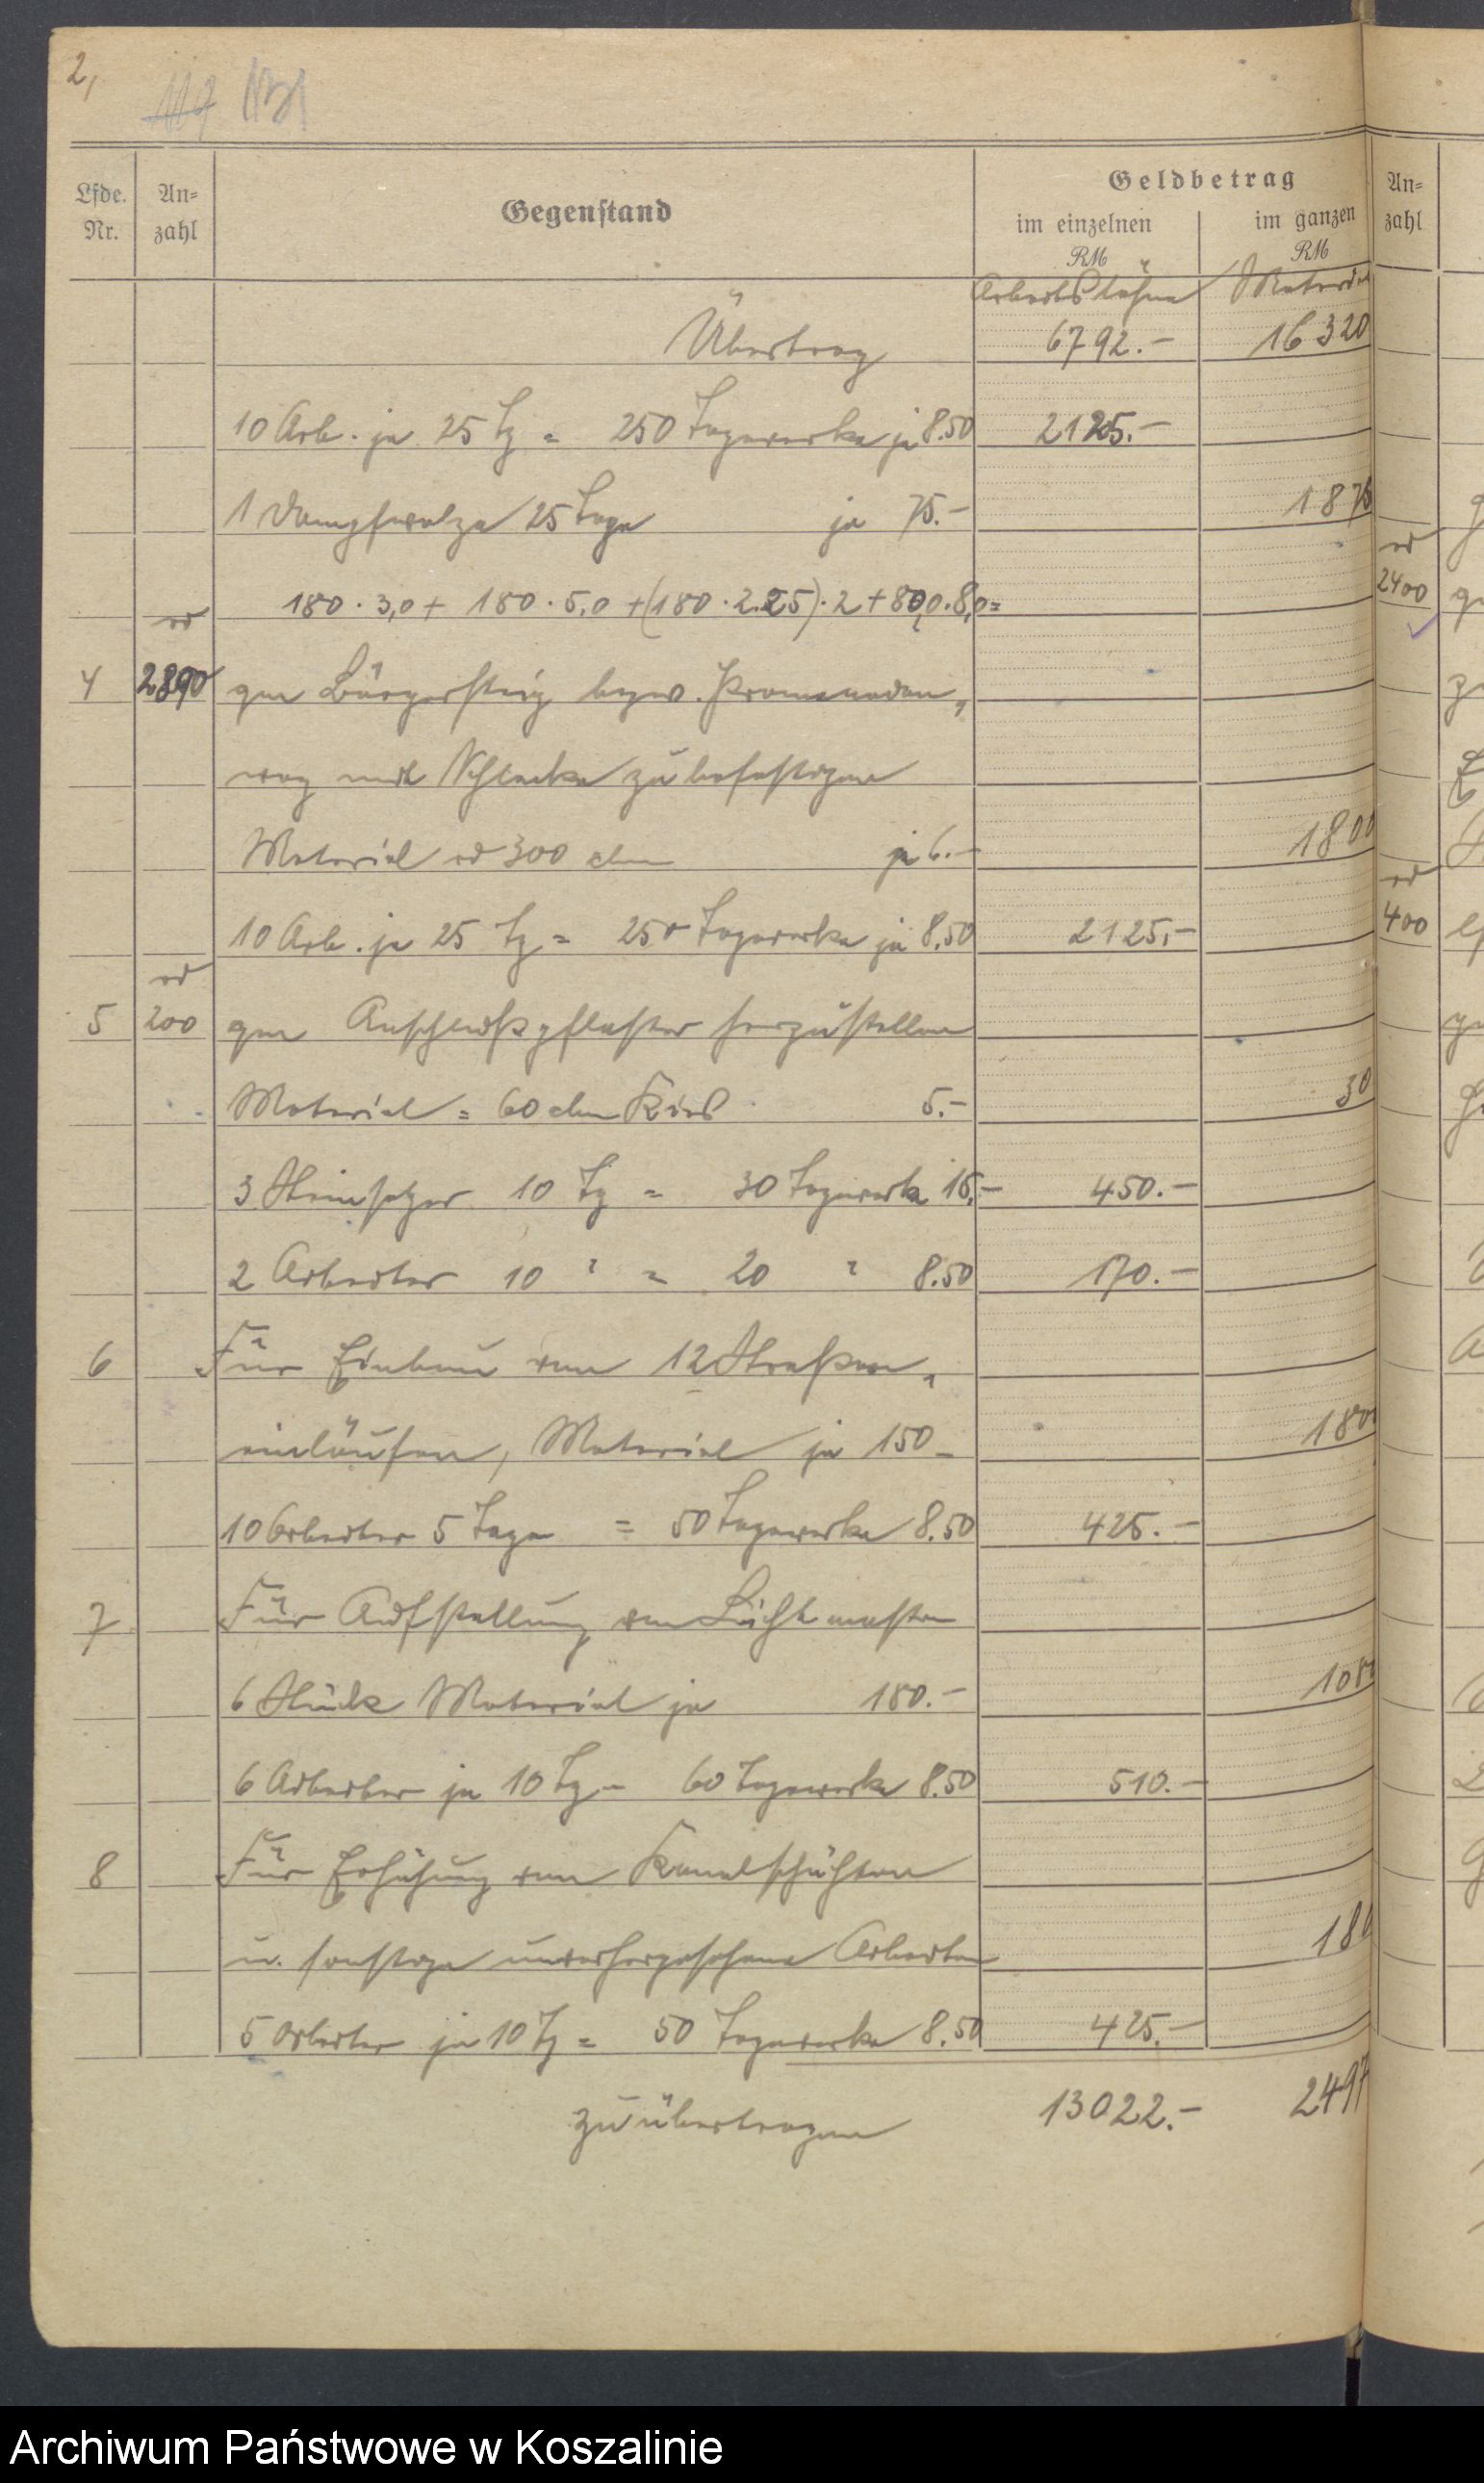 2,
119 131
Lfde. Nr. An-zahl Gegenstand Geldbetrag
im einzelnen RM im ganzen RM An-zahl
Arbeitslöhne Material
Übertrag 6792.– 16 320
10 Arb. je 25 Tg = 250 Tagewerke je 8.50 2125.–
1 Dampfwalze 25 Tage je 75.– 1875
180 · 3,0 + 180 · 5,0 + (180 · 2.25) · 2 + 80,0 · 8,0 =
rd
4 2890 qm Bürgersteig bezw. Promenaden-
weg mit Schlacke zu befestigen
Material rd 300 cbm je 6.– 1800
10 Arb. je 25 Tg = 250 Tagewerke je 8,50 2125,–
rd
5 200 qm Anschlußpflaster herzustellen
Material = 60 cbm Kies 5.– 30
3 Steinsetzer 10 Tg = 30 Tagewerke 15,– 450.–
2 Arbeiter 10 " = 20 " 8.50 170.–
6 Für Einbau von 12 Straßen-
einläufen, Material je 150– 180
10 Arbeiter 5 Tage = 50 Tagewerke 8.50 425.–
7 Für Aufstellung von Lichtmasten
6 Stück Material je 180.– 108
6 Arbeiter je 10 Tg = 60 Tagewerke 8.50 510.–
8 Für Erhöhung von Kanalschächten
u. sonstige unvorhergesehene Arbeiten 180
5 Arbeiter je 10 Tg = 50 Tagewerke 8.50 425.–
zu übertragen 13022.– 2497
rd
2400
rd
400
Archiwum Państwowe w Koszalinie